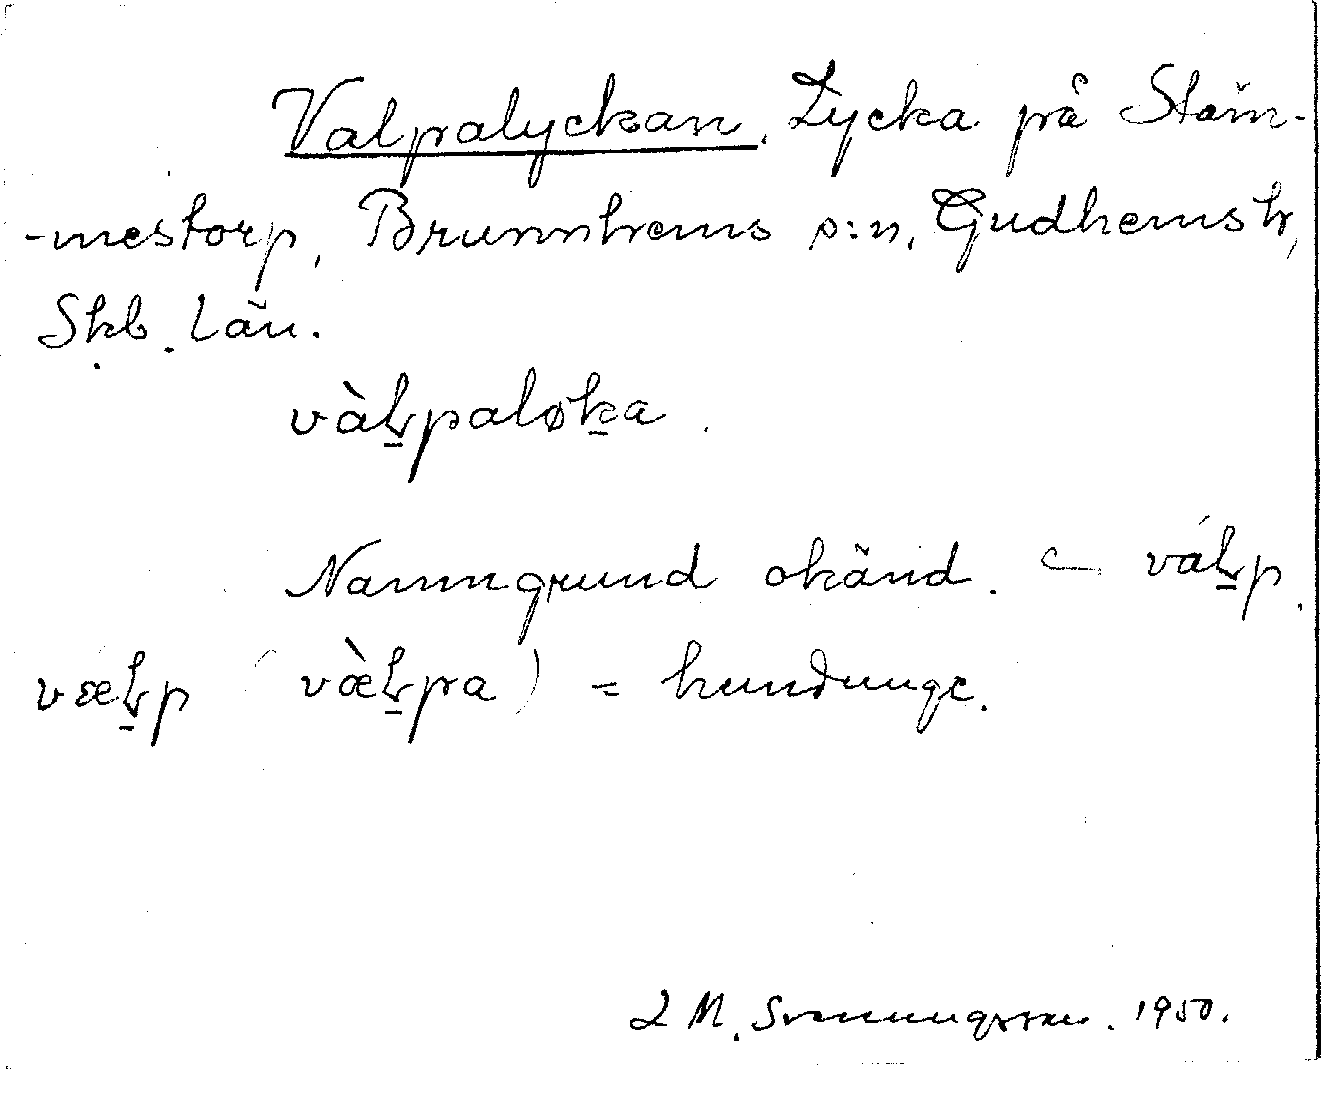 Valpalyckan. Lycka på Stäm-
-mestorp, Brunnhems s:n, Gudhems h,
Skb. län.
vàḻpaløḵa.
Namngrund okänd. váḻp.
væḻp (væ̀ḻpa) = hundunge.
L M. Svenungsson. 1950.